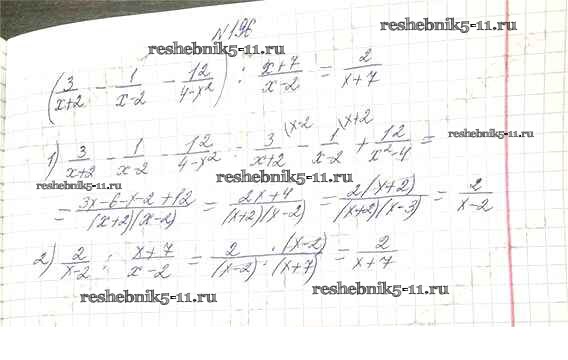 №196
reshebnik5-11.ru
reshebnik5-11.ru
(3/(x+2) - 1/(x-2) - 12/(4-x²)) : (x+7)/(x-2) = 2/(x+7)
1) 3/(x+2) - 1/(x-2) - 12/(4-x²) = 3/(x+2) (x-2 - 1/(x-2) (x+2 + 12/(x²-4) =
reshebnik5-11.ru
reshebnik5-11.ru
reshebnik5-11.ru
= (3x-6-x-2+12)/((x+2)(x-2)) = (2x+4)/((x+2)(x-2)) = 2(x+2)/((x+2)(x-3)) = 2/(x-2)
2) 2/(x-2) : (x+7)/(x-2) = 2·(x-2)/((x-2)·(x+7)) = 2/(x+7)
reshebnik5-11.ru
reshebnik5-11.ru